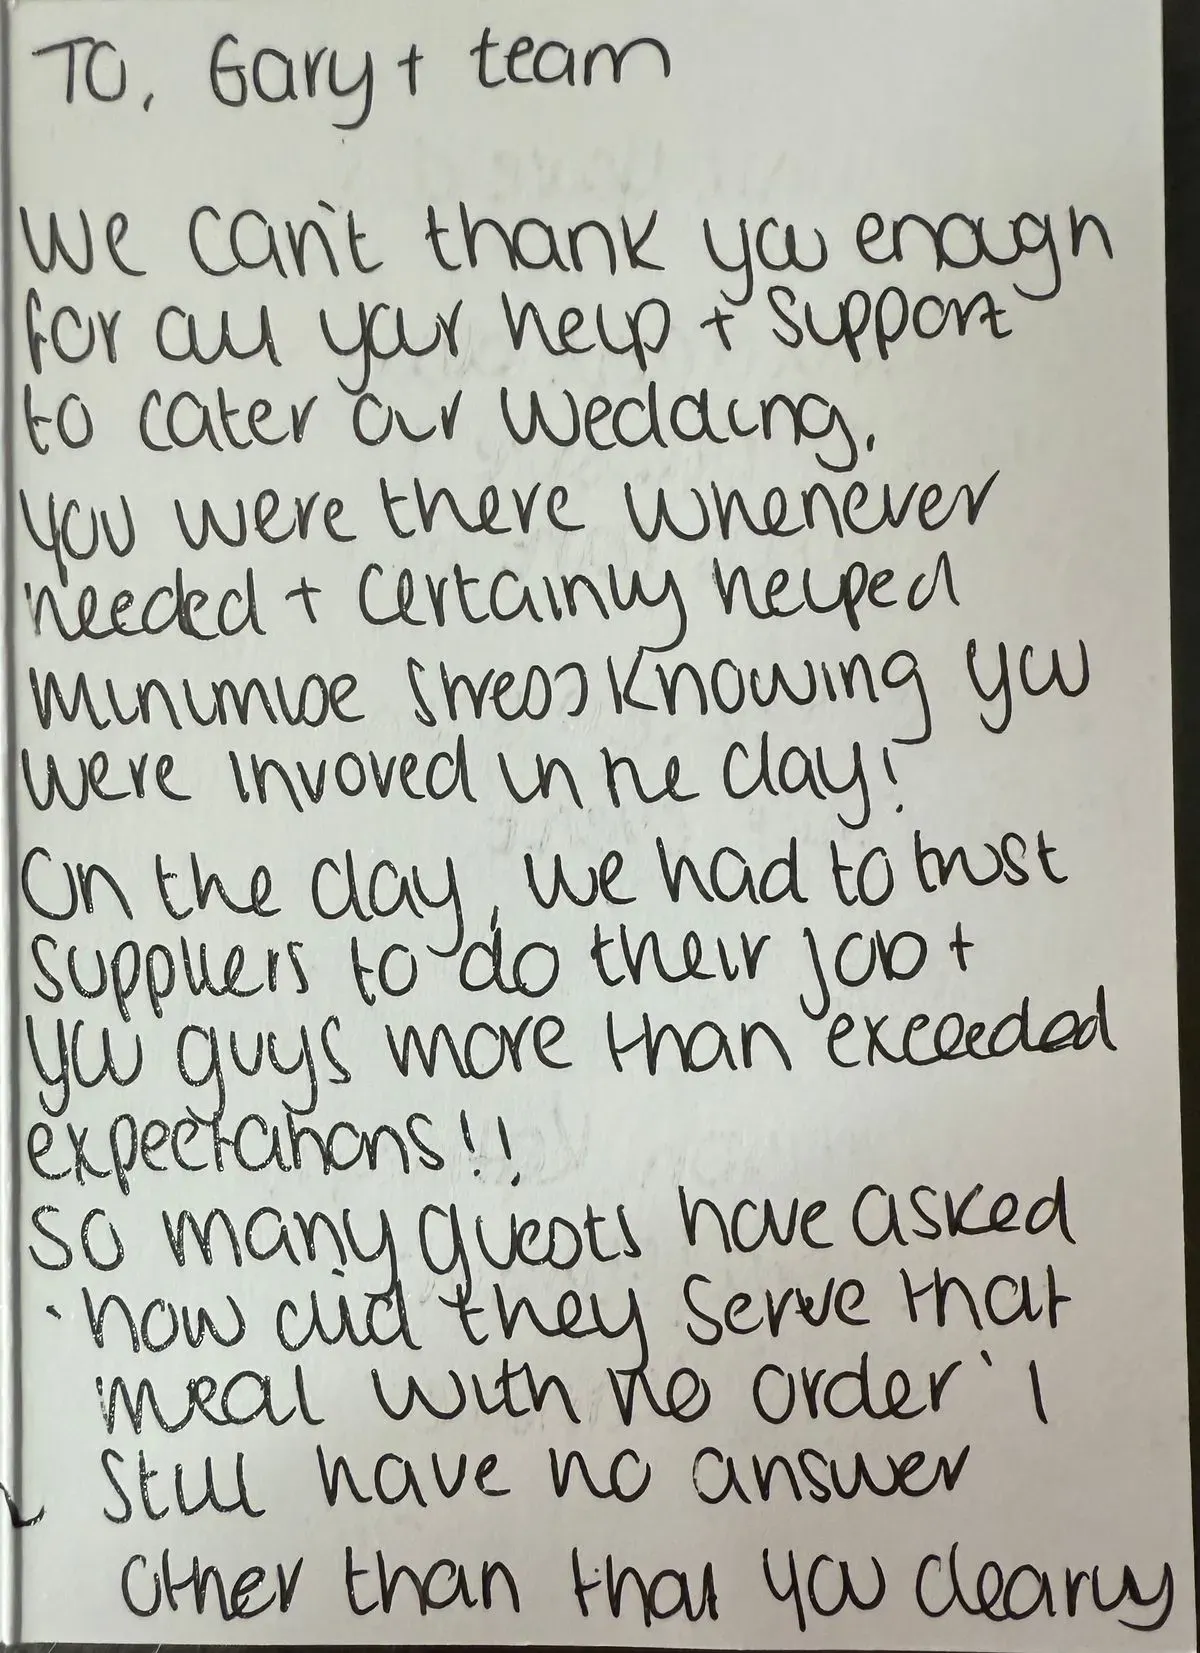 To, Gary + team
We can't thank you enough
for all your help + support
to cater our wedding.
You were there whenever
needed + certainly helped
minimise stress knowing you
were invoved in the day!
On the day, we had to trust
suppliers to do their job +
you guys more than exceeded
expectations!!
So many guests have asked
'how did they serve that
meal with no order' I
still have no answer
other than that you clearly